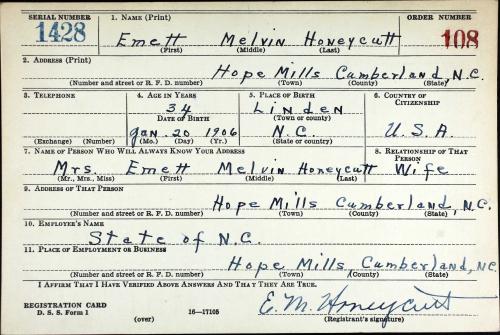 SERIAL NUMBER 1. NAME (Print) ORDER NUMBER
1428 Emett Melvin Honeycutt 108
(First) (Middle) (Last)
2. ADDRESS (Print)
Hope Mills Cumberland, N.C.
(Number and street or R. F. D. number) (Town) (County) (State)
3. TELEPHONE 4. AGE IN YEARS 5. PLACE OF BIRTH 6. COUNTRY OF CITIZENSHIP
34 Linden
DATE OF BIRTH (Town or county)
Jan. 20 1906 N.C. U.S.A.
(Exchange) (Number) (Mo.) (Day) (Yr.) (State or country)
7. NAME OF PERSON WHO WILL ALWAYS KNOW YOUR ADDRESS 8. RELATIONSHIP OF THAT PERSON
Mrs. Emett Melvin Honeycutt Wife
(Mr., Mrs., Miss) (First) (Middle) (Last)
9. ADDRESS OF THAT PERSON
Hope Mills Cumberland, N.C.
(Number and street or R. F. D. number) (Town) (County) (State)
10. EMPLOYER'S NAME
State of N.C.
11. PLACE OF EMPLOYMENT OR BUSINESS
Hope Mills, Cumberland, N.C.
(Number and street or R. F. D. number) (Town) (County) (State)
I AFFIRM THAT I HAVE VERIFIED ABOVE ANSWERS AND THAT THEY ARE TRUE.
REGISTRATION CARD E. M. Honeycutt
D. S. S. Form 1 (over) 16—17105 (Registrant's signature)